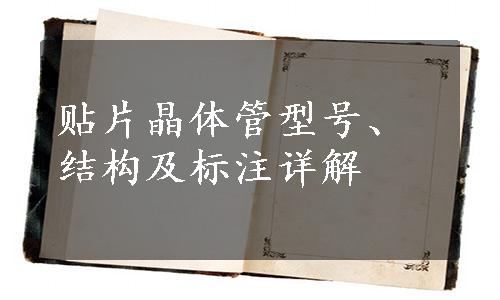 贴片晶体管型号、
结构及标注详解